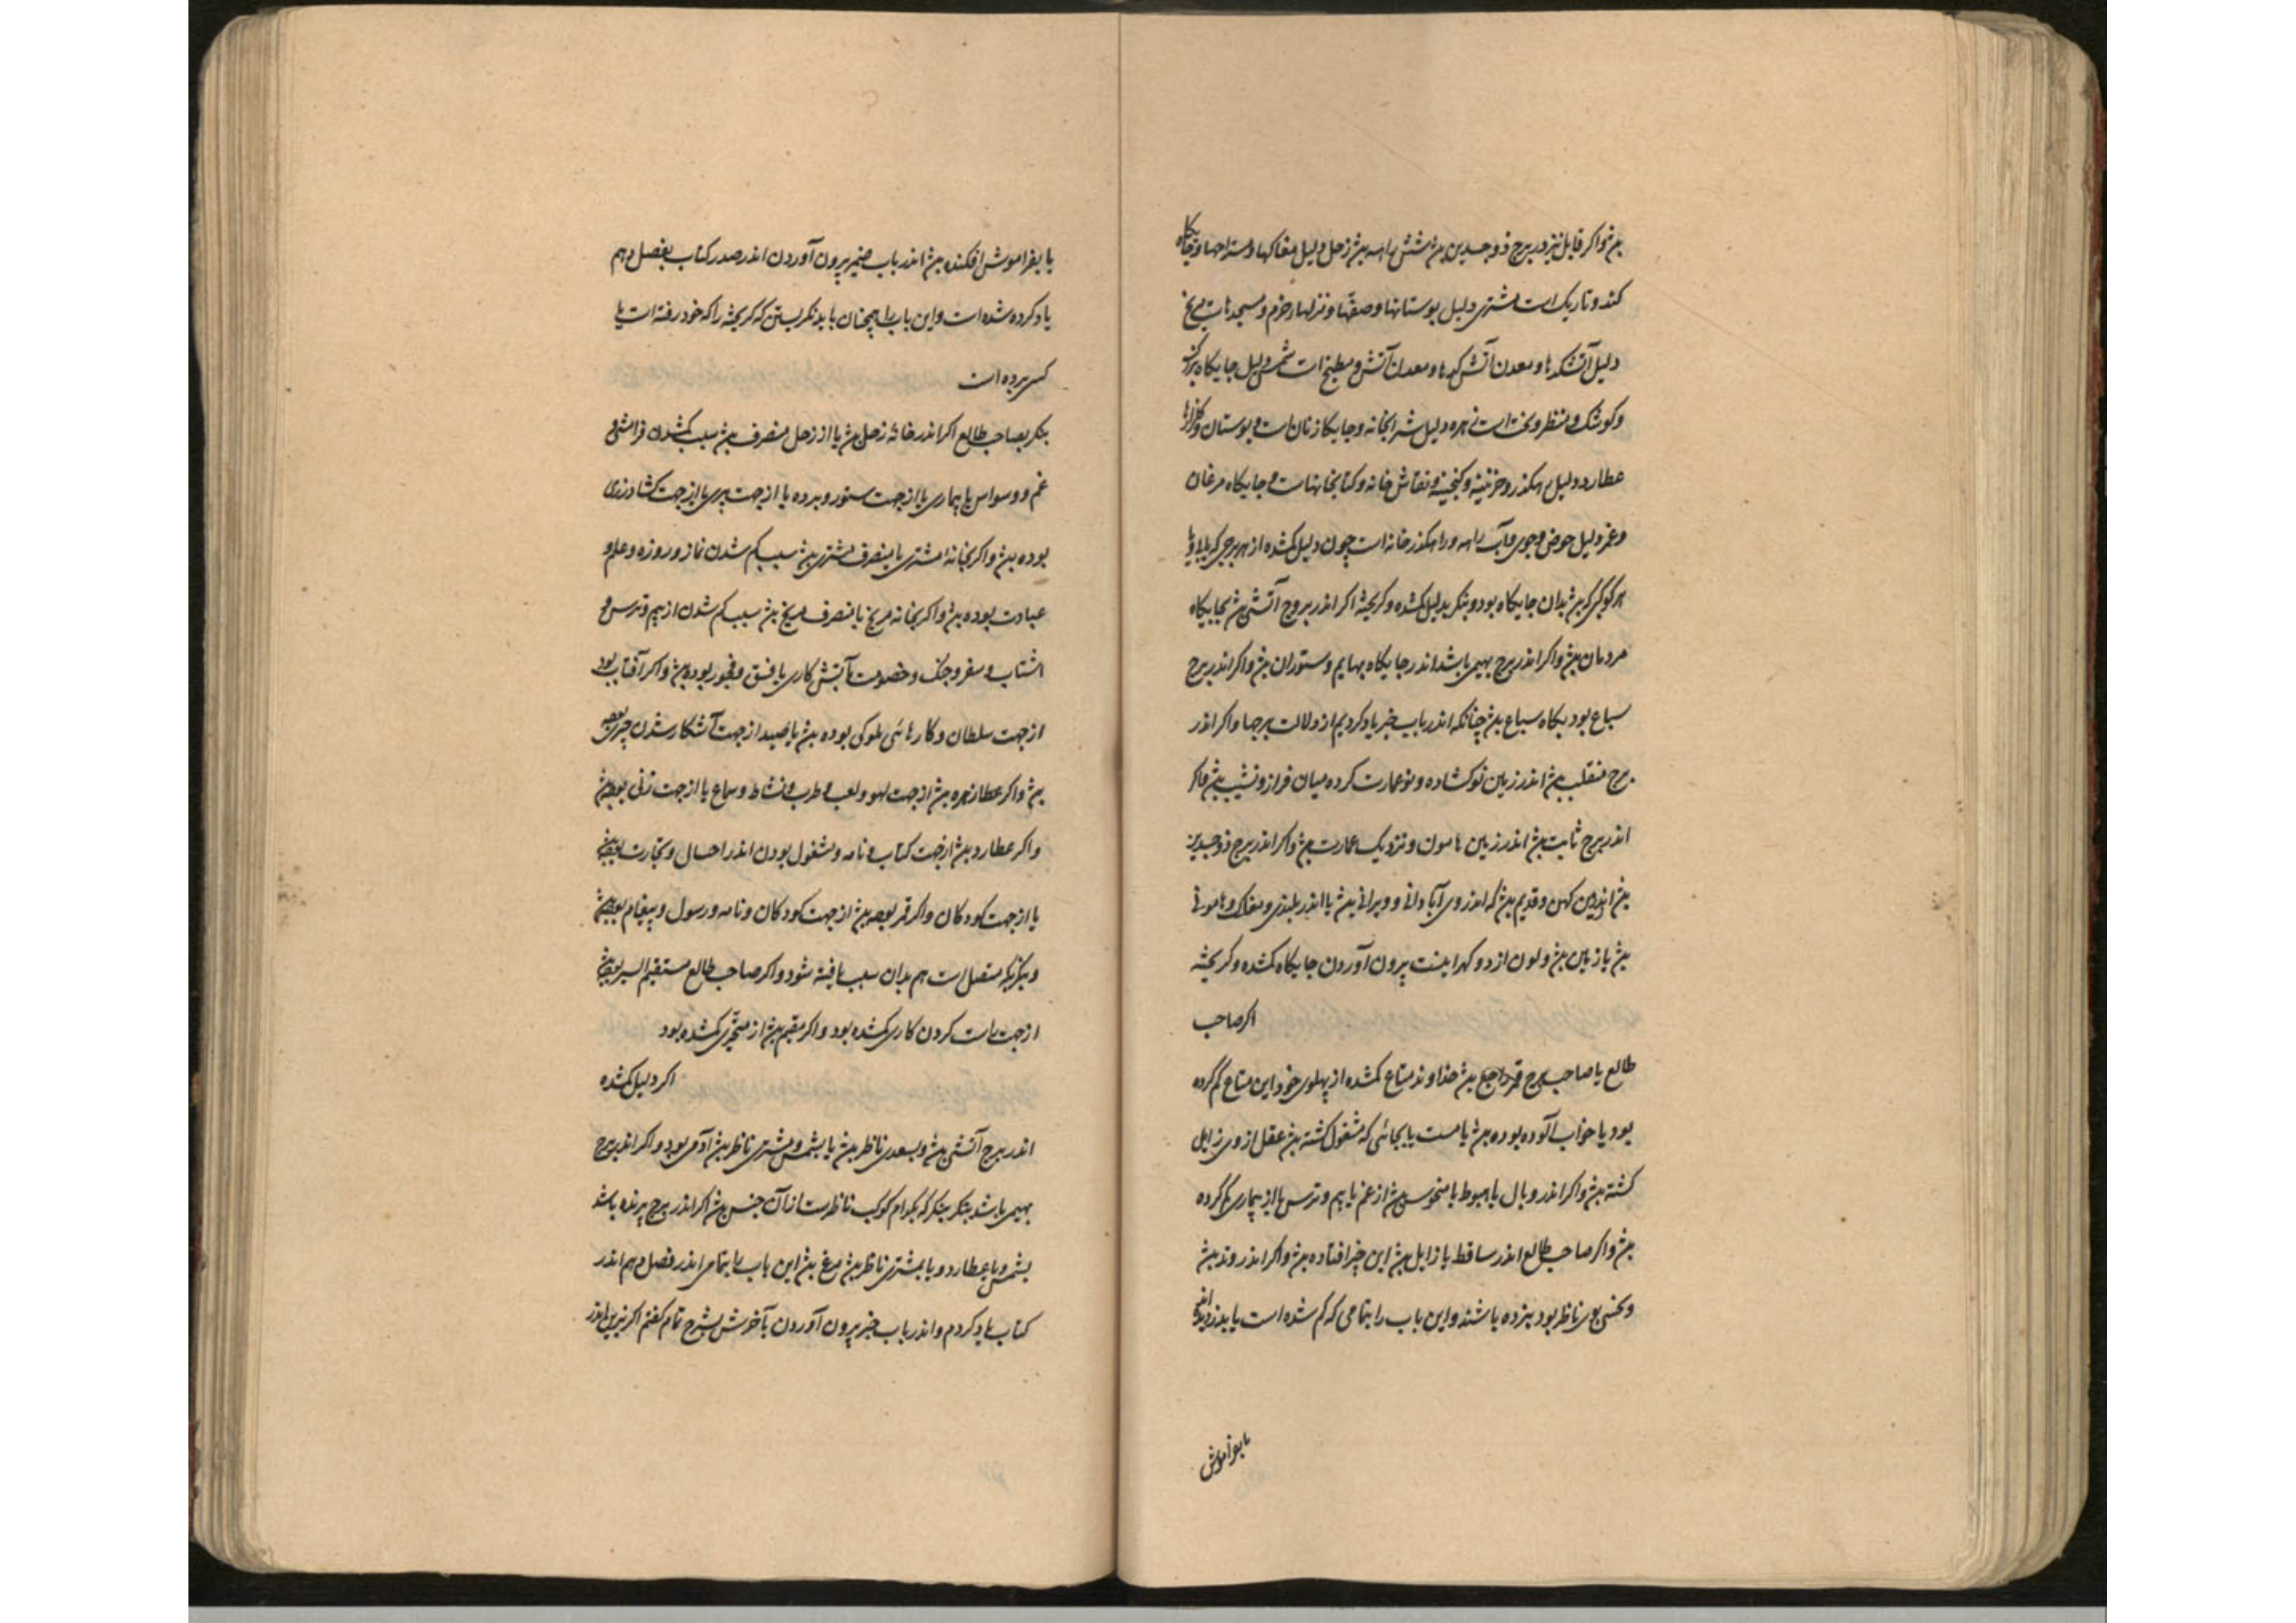 بیش واکر قابل نیز در برج ذوجسدین بیش شش راسه بیش زحل دلیل مغاکها و مستراحها و جایکاه
کنده و تاریک است مشتری دلیل بوستانها و صفّها و منزلها خرم و مسجدهاست مریخ
دلیل آتشکدها و معدن آتش کدها و معدن آتش و مطبخ است شمس دلیل جایکاه بزرک
و کوشک و منظر و تخت است زهره دلیل شرابخانه و جایکاه زنان است و بوستان و کلزارها
عطارد دلیل رهکذر و خزینه و کنجینه و نقاش خانه و کتابخانهاست و جایکاه مرغان
و قمر دلیل حوض و جوی و آب راسه و راهکذر خانه است چون دلیل کمشده از هر برجی که
هر کوکبی که بیش بدان جایکاه بود و بنکر بدلیل کمشده و کریخته اکر اندر بروج آتشی بیش بجایکاه
مردمان بیش و اکر اندر برج بهیمی باشد اندر جایکاه بهایم و ستوران بیش و اکر اندر برج
سباع بود بکاه سباع بیش چنانکه اندر باب خبر یاد کردیم از دلالت برجها و اکر اندر
برج منقلب بیش اندر زمین نوکشاده و نوعمارت کرده میان فراز و نشیب بیش و اکر
اندر برج ثابت بیش اندر زمین هامون و نزدیک عمارت بیش و اکر اندر برج ذوجسدین
بیش اندر زمین کهن و قدیم بیش که اندر وی آبادانی و ویرانی بیش یا اندر بلندی و مغاک و هامونی
بیش یا زمین بیش و لون از دو کهر اینست بیرون آوردن جایکاه کمشده و کریخته
اکر صاحب
طالع یا صاحب برج قمر راجع بیش خداوند متاع کمشده از پهلوی خود این متاع کم کرده
بود یا خواب آلوده بوده بیش یا مست یا بجائی که مشغول کشته بیش عقل از وی زایل
کشته بیش و اکر اندر وبال یا هبوط یا منحوس بیش از غم یا بیم و ترس یا از بیماری کم کرده
بیش و اکر صاحب طالع اندر ساقط یا زایل بیش این چیز افتاده بیش و اکر اندر وتد بیش
و نحسی بوی ناظر بود بدزده باشند و این باب را بتمامی که کم شده است یا بدزدیدند
یا بفراموش
یا بفراموش افکنده بیش اندر باب ضمیر بیرون آوردن اندر صدر کتاب بفصل دهم
یاد کرده شده است و این باب را همچنان باید نکریستن که کریخته را که خود رفته است یا
کسی برده است
بنکر بصاحب طالع اکر اندر خانهٔ زحل بیش یا از زحل منصرف بیش سبب کمشدن فرامشی و
غم و وسواس یا بیماری یا از جهت ستور و برده یا از جهت پیری یا از جهت کشاورزی
بوده بیش و اکر بخانه مشتری یا منصرف مشتری بیش سبب کم شدن نماز و روزه و علم و
عبادت بوده بیش و اکر بخانه مریخ یا منصرف مریخ بیش سبب کم شدن از بیم و ترس و
اشتاب و سفر و جنک و خصومت یا آتش کاری یا فسق و فجور بوده بیش و اکر آفتاب بود
از جهت سلطان و کارهائی ملوکی بوده بیش یا صید از جهت آشکار شدن چیزی بوده
بیش و اکر عطار زهره بیش از جهت لهو و لعب و طرب و نشاط و سماع یا از جهت زنی بوده بیش
و اکر عطارد بیش از جهت کتاب و نامه و مشغول بودن اندر احسال و تجارت بوده بیش
یا از جهت کودکان و اکر قمر بود بیش از جهت کودکان و نامه و رسول و پیغام بوده بیش
و بنکر بکه متصل است هم بدان سبب یافته شود و اکر صاحب طالع مستقیم السیر بوده بیش
از جهت راست کردن کاری کمشده بود و اکر مقیم بیش از متحیّری کمشده بود
اکر دلیل کمشده
اندر برج آتشی بیش و بسعدی ناظر بیش یا بشمس و مشتری ناظر بیش آدمی بود و اکر اندر برج
بهیمی باشد بنکر بنکر که بکدام کوکب ناظرست از آن جنس بیش اکر اندر برج پرنده باشد
بشمس یا عطارد و یا بمشتری ناظر بیش مرغ بیش این باب را بتمامی اندر فصل دهم اندر
کتاب یاد کردم و اندر باب خبر بیرون آوردن بآخرش بشرح تمام کفتم اکر نیرین اندر